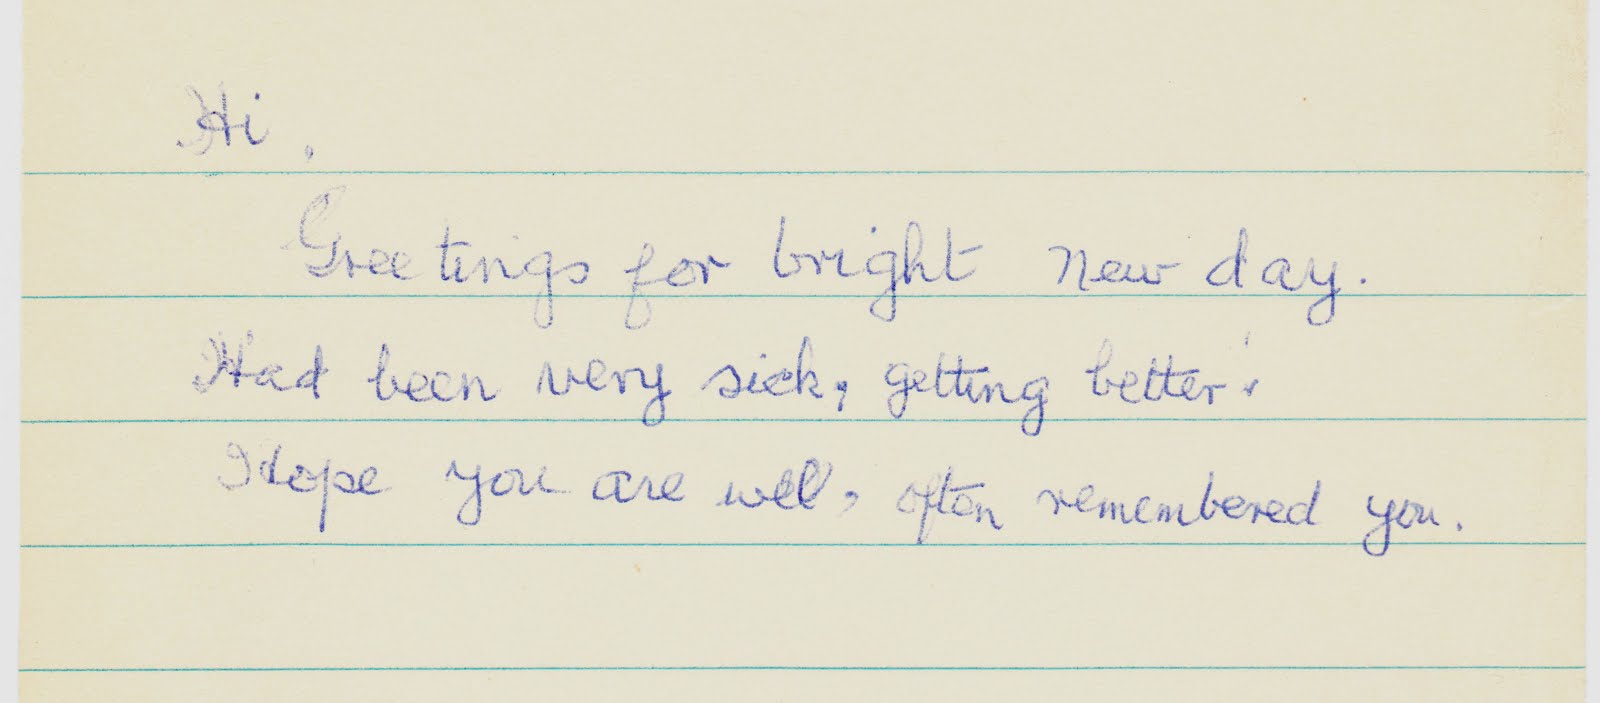 Hi,
Greetings for bright new day.
Had been very sick, getting better!
Hope you are well, often remembered you.